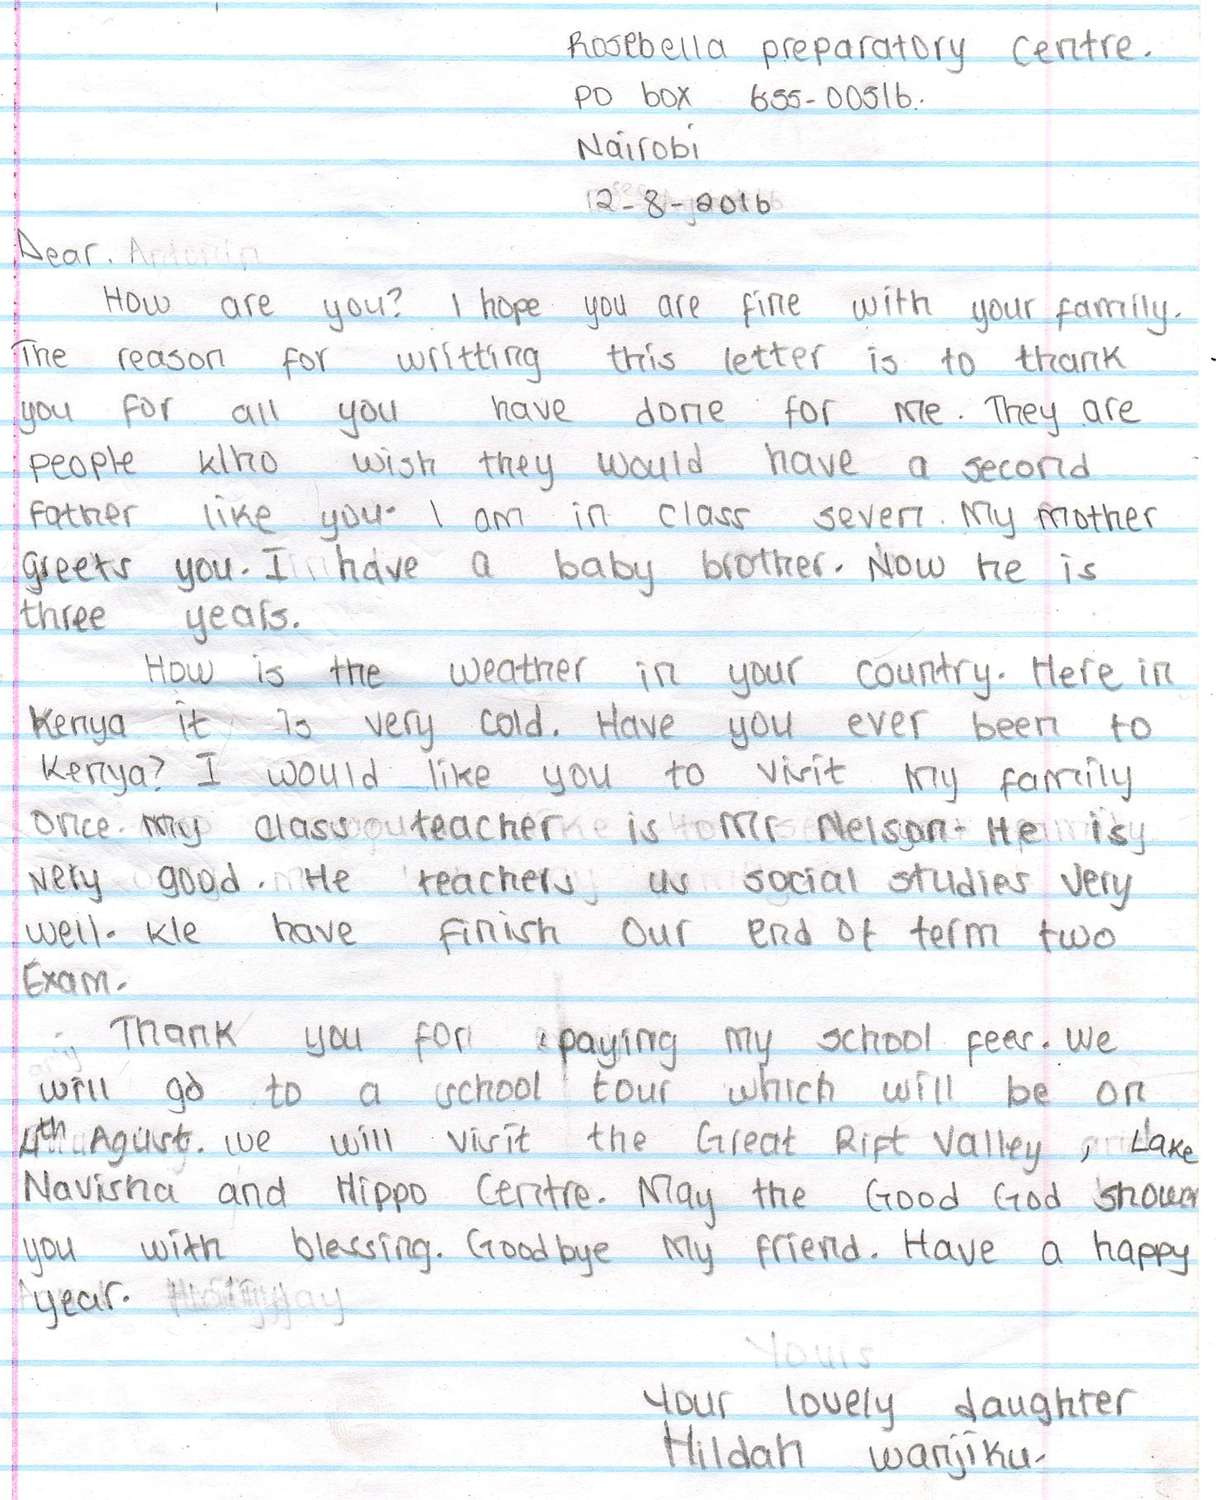 Rosebella preparatory centre.
PO box 655-00516.
Nairobi
12-8-2016
Dear. Antonin
How are you? I hope you are fine with your family.
The reason for writting this letter is to thank
you for all you have done for me. They are
people who wish they would have a second
father like you. I am in class seven. My mother
greets you. I have a baby brother. Now he is
three years.
How is the weather in your country. Here in
Kenya it is very cold. Have you ever been to
Kenya? I would like you to visit my family
once. my class teacher is Mr Nelson. He is
very good. He teachers us social studies very
well. We have finish our end of term two
Exam.
Thank you for paying my school fees. We
will go to a school tour which will be on
4th Agust. we will visit the Great Rift Valley, Lake
Navisha and Hippo Centre. May the Good God shower
you with blessing. Goodbye my friend. Have a happy
year.
Yours
Your lovely daughter
Hildah wanjiku.